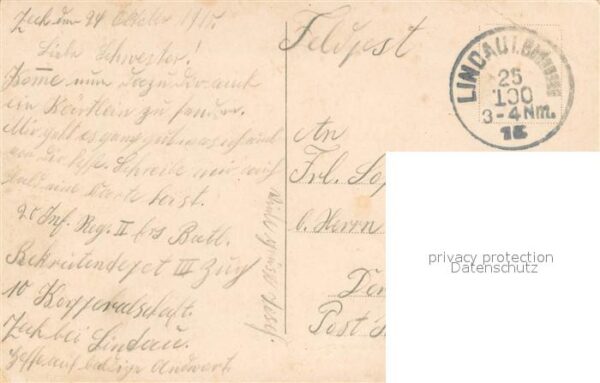 Zech den 24 Oktober 1915.
Liebe Schwester!
Komme nun dazu dir auch
ein Kärtlein zu senden.
Mir geht es ganz gut was ich auch
von dir hoffe. Schreibe mir auch
bald eine Karte
20 Inf. Reg. II Ers Batl.
Rekrutendepot III Zug
10 Korporalschaft.
Zech bei Lindau.
Hoffe auf baldige Andwort
Feldpost
LINDAU i.B.
25
3-4 Nm.
15
An
Frl.
b. Herrn
Post
privacy protection
Datenschutz